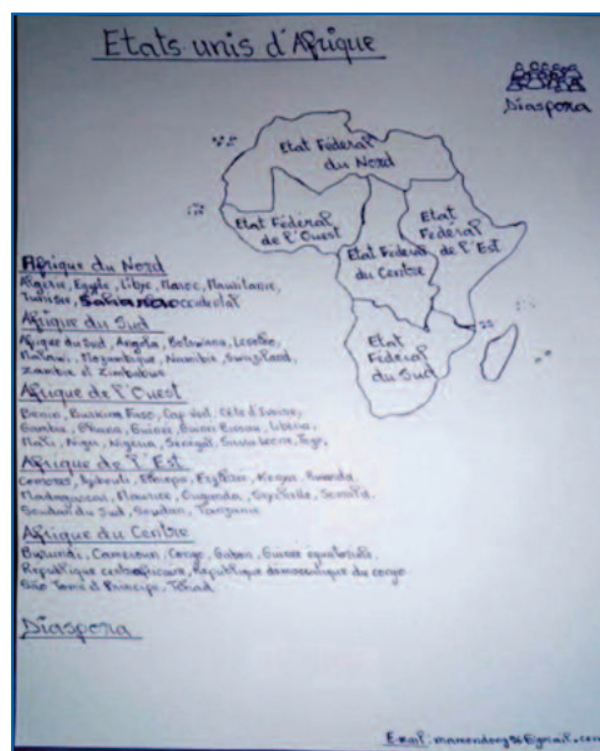 Etats unis d'Afrique
Diaspora
Etat Fédéral
du Nord
Etat Fédéral
de l'Ouest
Etat
Fédéral
de l'Est
Etat Fédéral
du Centre
Etat
Fédéral
du Sud
Afrique du Nord
Algérie, Egypte, Libye, Maroc, Mauritanie,
Tunisie, occidental
Afrique du Sud
Afrique du Sud, Angola, Botswana, Lesotho,
Malawi, Mozambique, Namibie, Swaziland,
Zambie et Zimbabwe
Afrique de l'Ouest
Benin, Burkina Faso, Cap Vert, Côte d'Ivoire,
Gambie, Ghana, Guinée, Guinée Bissau, Libéria,
Mali, Niger, Nigeria, Sénégal, Sierra Leone, Togo,
Afrique de l'Est
Comores, Djibouti, Kenya, Rwanda,
Madagascar, Maurice, Ouganda,
Soudan du Sud, Soudan, Tanzanie
Afrique du Centre
Burundi, Cameroun, Congo, Gabon, Guinée équatoriale,
République centrafricaine, République démocratique du congo
São Tomé et Principe, Tchad
Diaspora